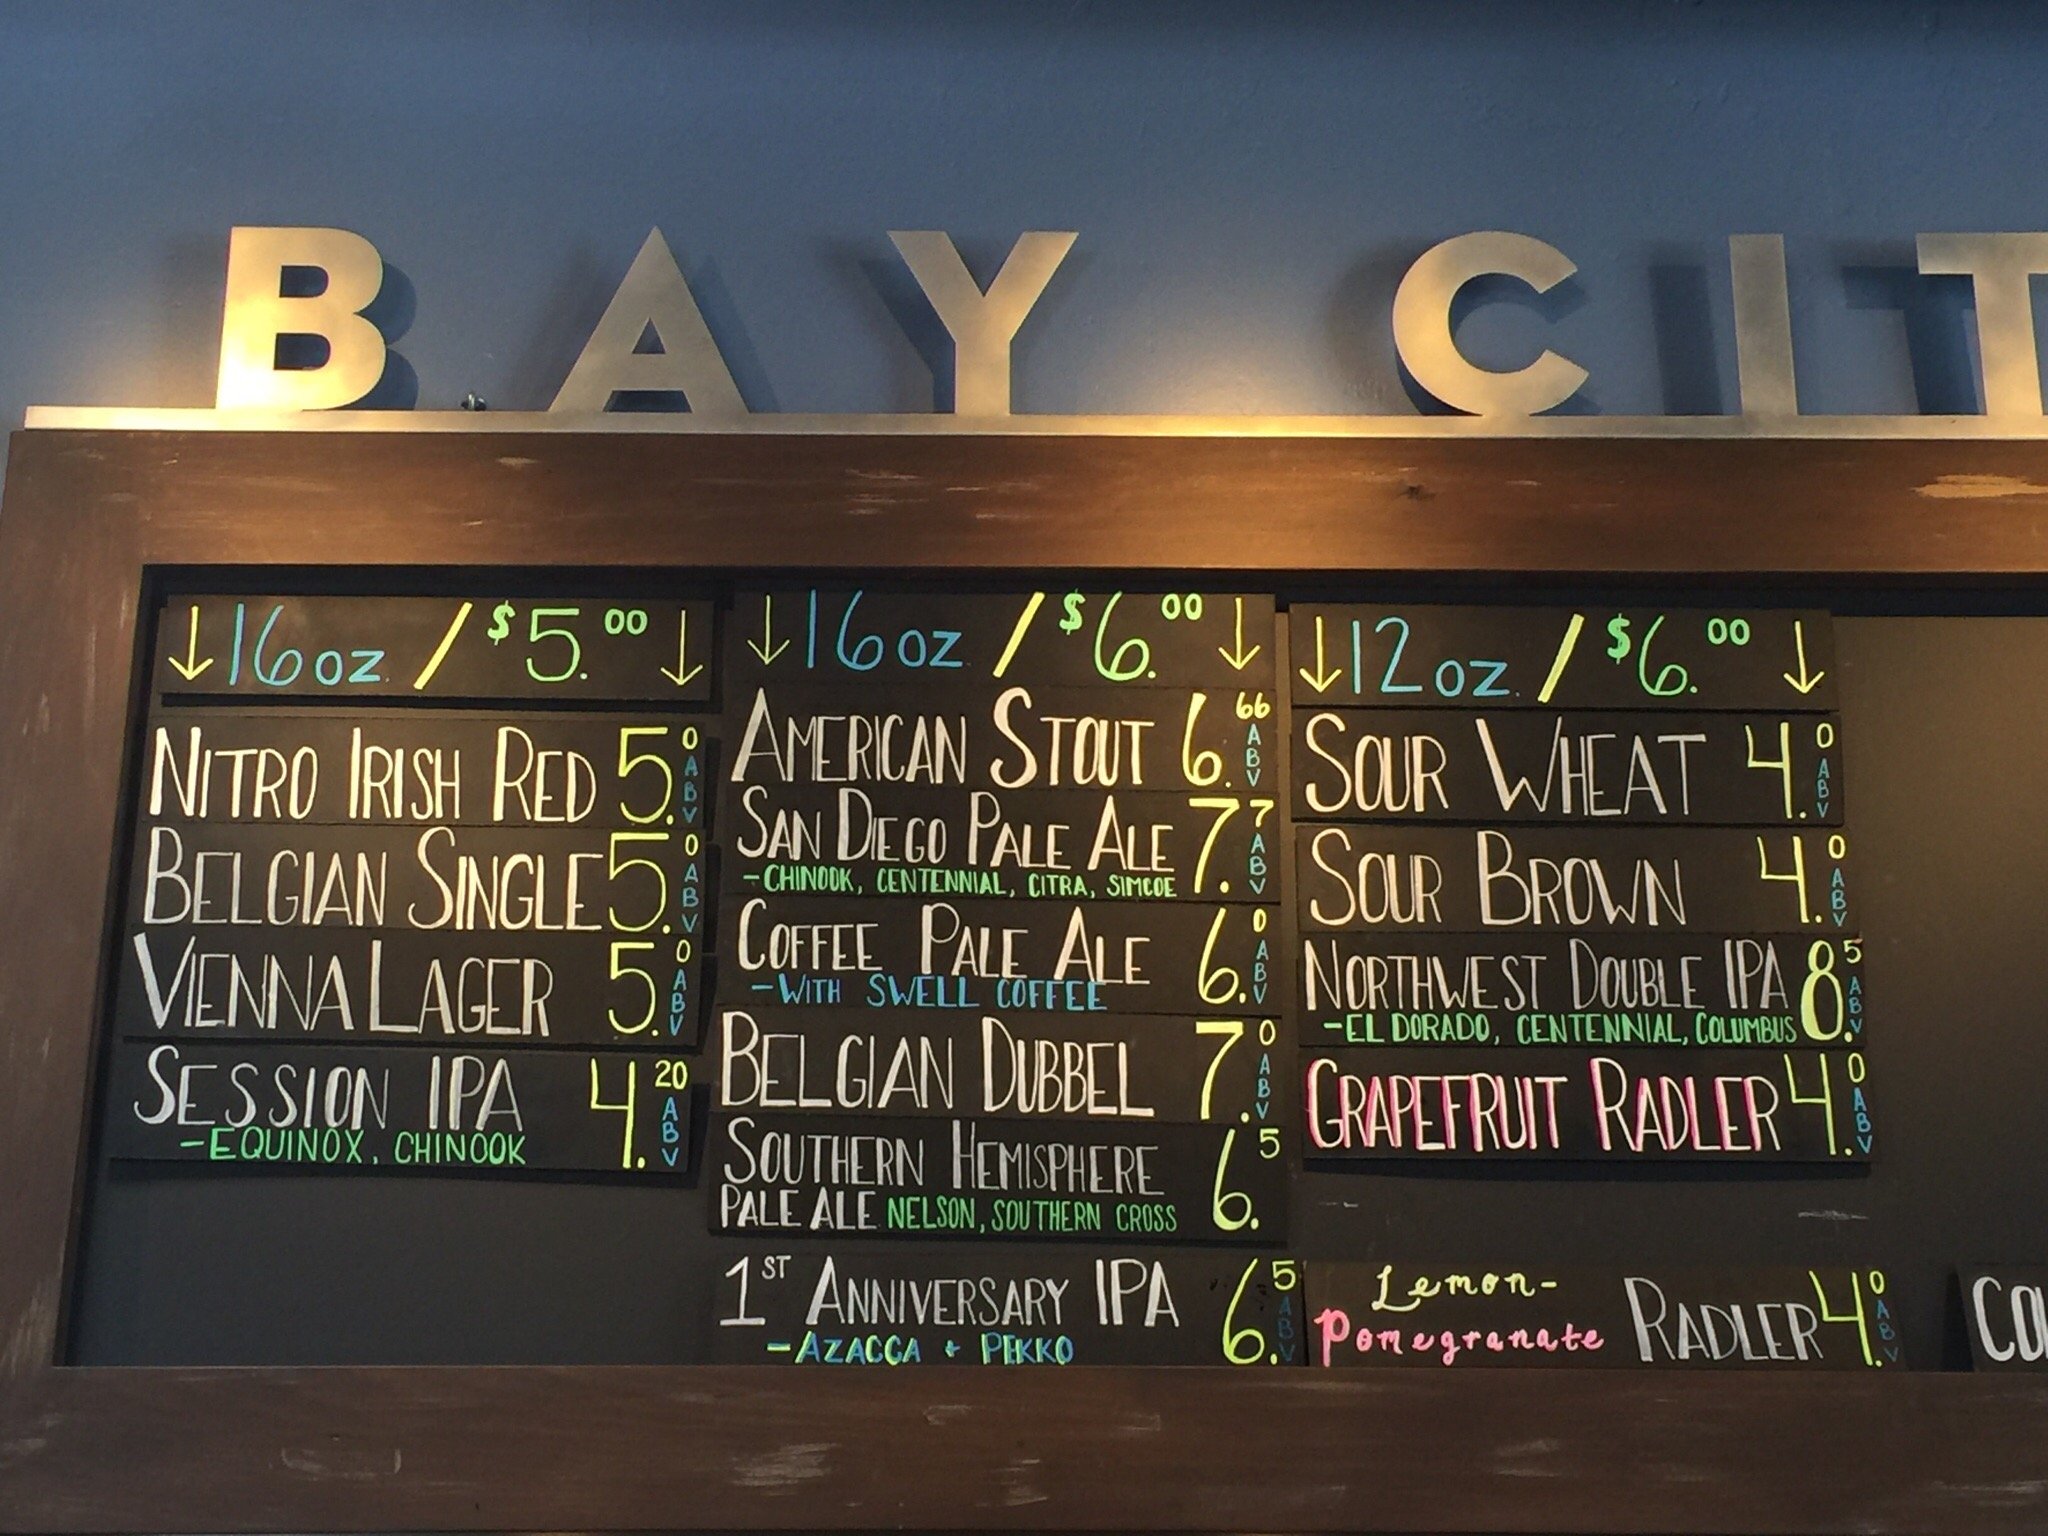 BAY CIT
↓ 16 oz. / $5.00 ↓
NITRO IRISH RED 5.0 ABV
BELGIAN SINGLE 5.0 ABV
VIENNA LAGER 5.0 ABV
SESSION IPA 4.20 ABV
-EQUINOX, CHINOOK
↓ 16 oz. / $6.00 ↓
AMERICAN STOUT 6.66 ABV
SAN DIEGO PALE ALE 7.7 ABV
-CHINOOK, CENTENNIAL, CITRA, SIMCOE
COFFEE PALE ALE 6.0 ABV
-WITH SWELL COFFEE
BELGIAN DUBBEL 7.0 ABV
SOUTHERN HEMISPHERE 6.5
PALE ALE NELSON, SOUTHERN CROSS
1ST ANNIVERSARY IPA 6.5 ABV
-AZACCA + PEKKO
↓ 12 oz. / $6.00 ↓
SOUR WHEAT 4.0 ABV
SOUR BROWN 4.0 ABV
NORTHWEST DOUBLE IPA 8.5 ABV
-EL DORADO, CENTENNIAL, COLUMBUS
GRAPEFRUIT RADLER 4.0 ABV
Lemon-
Pomegranate RADLER 4.0 ABV